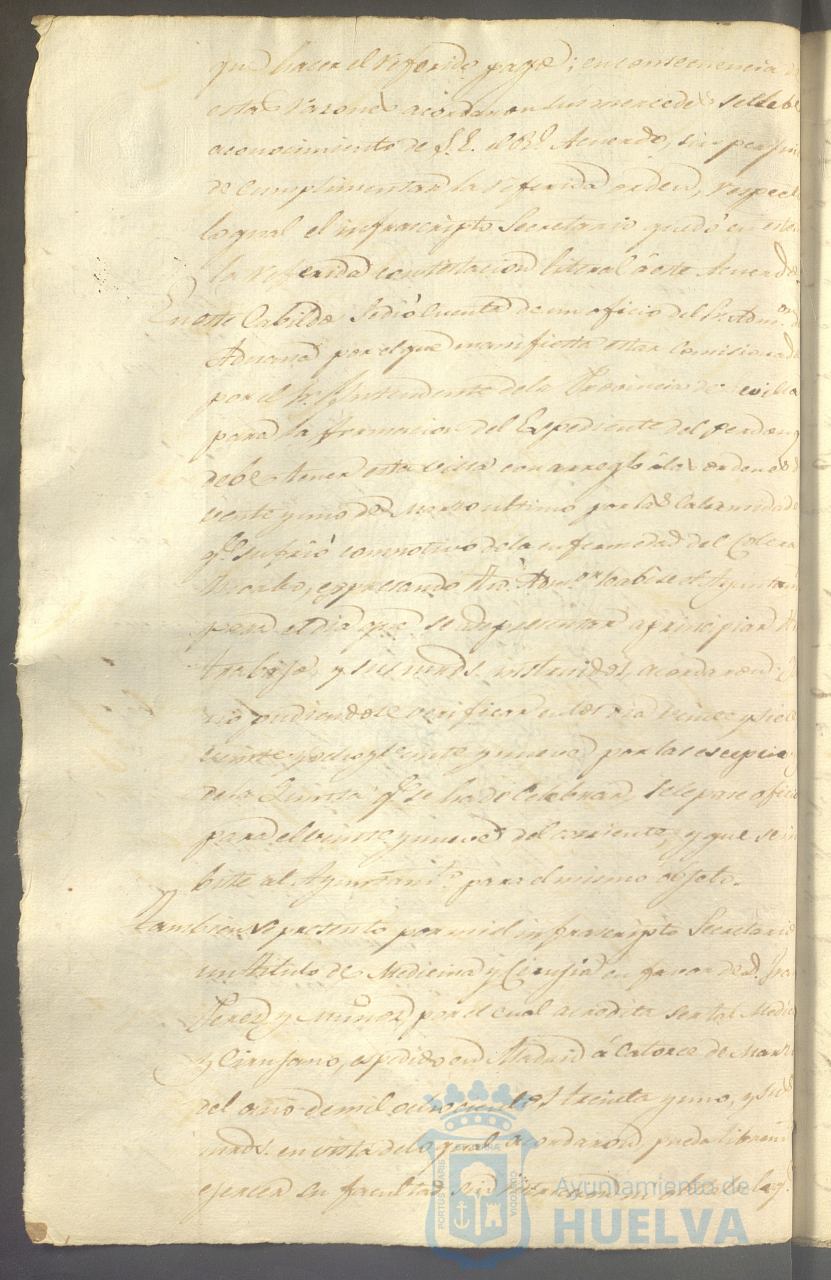 que hacer el referido page; en consecuencia de
estas razones acordaron sus mercedes se lleve
a conocimiento de S. E. el Rl. Acuerdo, sin perjui
de cumplimentar la referida orden, respecto
lo qual el infrascripto Secretario quedó en
la referida contestacion literal á este Acuerdo
En este Cabildo se dió cuenta de un oficio del Sr. Admor. de
Aduana por el que manifiesta estar comisionado
por el Sr. Yntendente de la Provincia de Sevilla
para la formacion del Espediente del perdon q
debe tener esta villa con arreglo á las ordenes de
veinte y uno de Marzo ultimo por las calamidades
qe. sufrió con motivo de la enfermedad del Colera
Morbo, espresando dho. Admor. se abise al Ayuntam
para el dia que se á de presentar a principiar
trabajo, y sus mrds. instruidos, acordaron
no pudiendose verificar en los dias veinte y siete
veinte y ocho y veinte y nueve por las escepcio
de la Quinta qe. se ha de celebrar, se le pase oficio
para el veinte y nueve del corriente, y que se in
bite al Ayuntamto. para el mismo objeto.
Tambien se presentó por mi el infrascripto Secretario
un titulo de Medicina y Cirujia en favor de D.
Perez y Muñoz, por el cual acredita ser tal Medico
y Cirujano, espedido en Madrid á catorce de Marzo
del año de mil ochocientos treinta y uno, y sus
mrds. en vista de lo qual acordaron pueda librem
ejercer su facultad sin
PORTUS MARIS
ET TERRAE
CUSTODIA
Ayuntamiento de
HUELVA